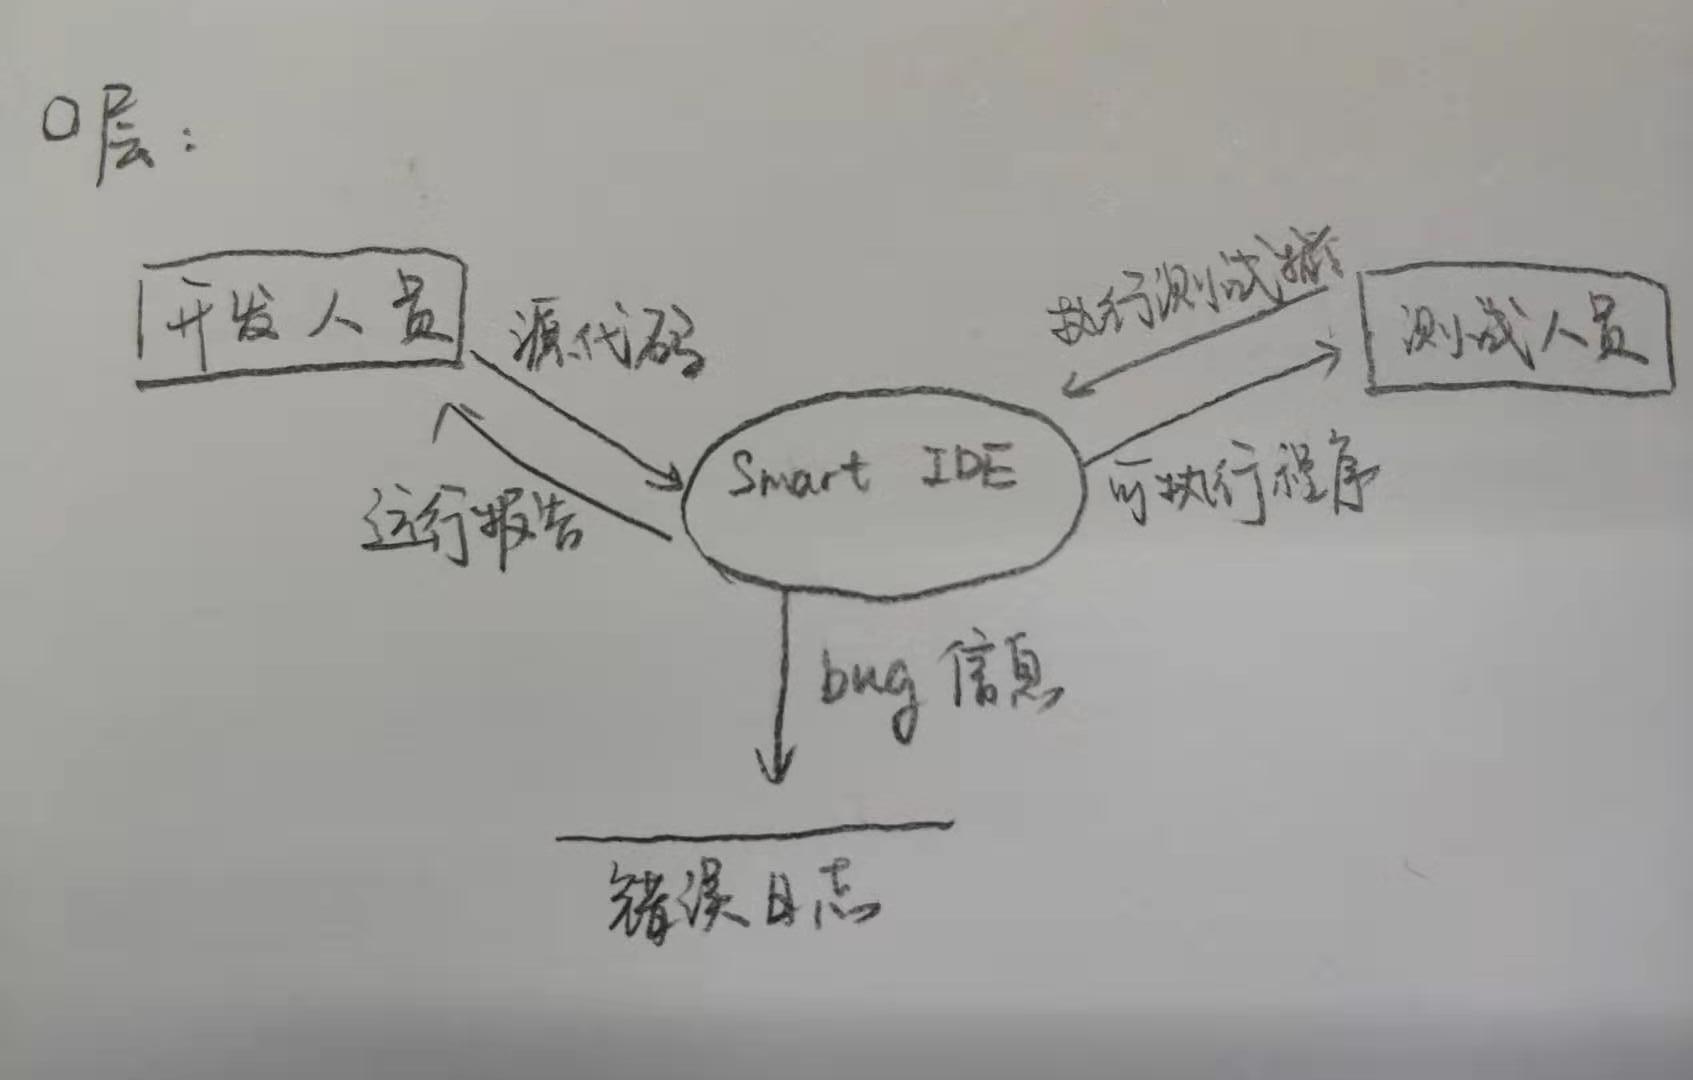 0层:
开发人员
源代码
运行报告
Smart IDE
执行测试
测试人员
可执行程序
bug 信息
错误日志